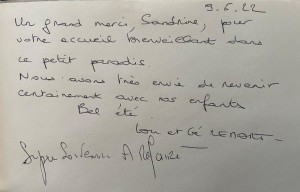 9.6.22
Un grand merci, Sandrine, pour
votre accueil bienveillant dans
ce petit paradis.
Nous avons très envie de revenir
certainement avec nos enfants
Bel été.
et Gé
A Refaire